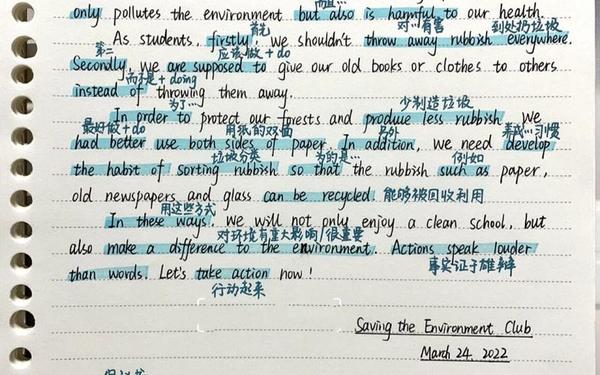 only pollutes the environment but also is harmful to our health.
首先 对…有害 到处扔垃圾
As students, firstly, we shouldn't throw away rubbish everywhere.
第二 应该做+do
Secondly, we are supposed to give our old books or clothes to others
而不是+doing
instead of throwing them away.
为了… 少制造垃圾
In order to protect our forests and produce less rubbish, we
最好做+do 用纸的双面 另外 养成…习惯
had better use both sides of paper. In addition, we need develop
垃圾分类 为的是… 例如
the habit of sorting rubbish so that the rubbish such as paper,
old newspapers and glass can be recycled. 能够被回收利用
用这些方式
In these ways, we will not only enjoy a clean school, but
对环境有重大影响/很重要
also make a difference to the environment. Actions speak louder
事实证于雄辩
than words. Let's take action now!
行动起来
Saving the Environment Club
March 24, 2022